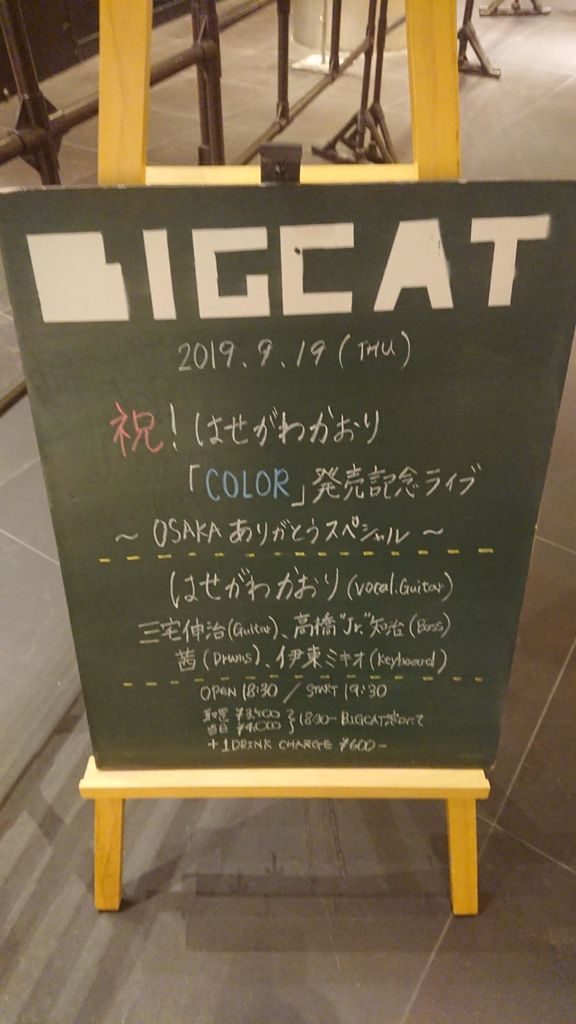 BIGCAT
2019.9.19 (THU)
祝! はせがわかおり
「COLOR」発売記念ライブ
～ OSAKA ありがとうスペシャル ～
はせがわかおり (vocal.Guitar)
三宅伸治 (Guitar)、高橋"Jr."知治 (Bass)
茜 (Drums)、伊東ミキオ (Keyboard)
OPEN 18:30 / START 19:30
¥3,500
当日 ¥4,000 } (18:30~ BIGCAT
+1DRINK CHARGE ¥600-